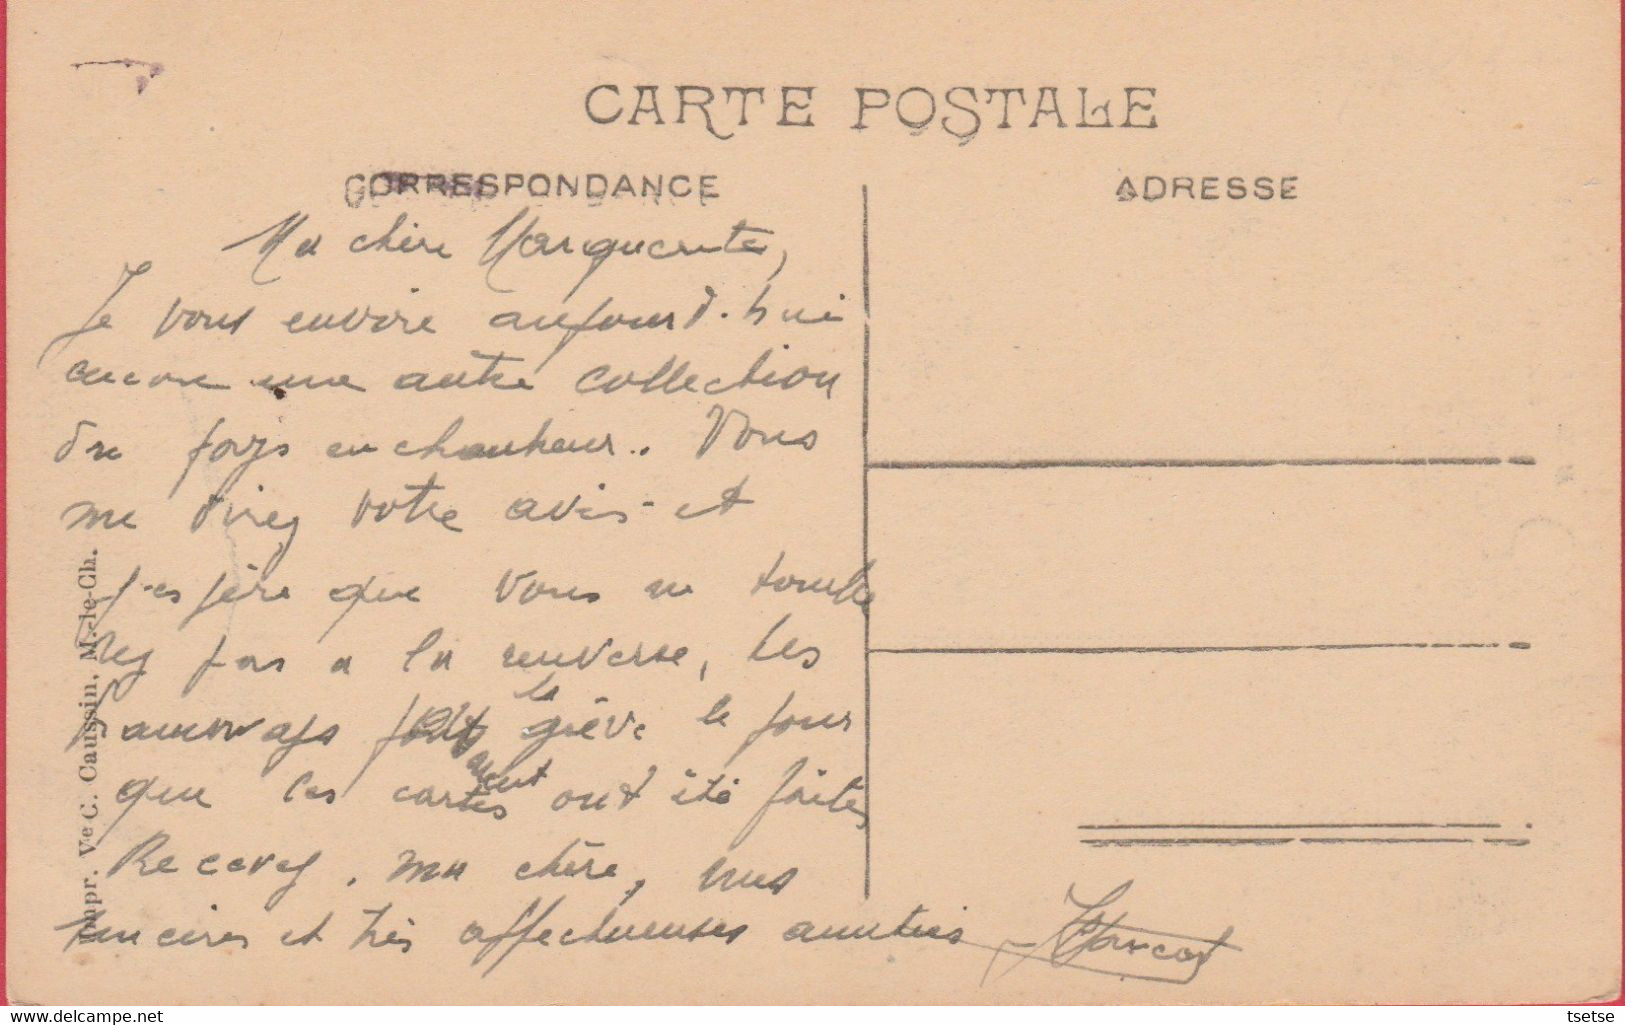 CARTE POSTALE
CORRESPONDANCE
ADRESSE
Ma chère Marguerite,
Je vous envoie aujourd'hui
encore une autre collection
du pays enchanteur. Vous
me direz votre avis et
j'espère que vous ne tombe
rez pas a la renverse, les
la
grève le jour
que les cartes ont été faites
Recevez, ma chère, mes
sincères et très affectueuses amitiés
Impr. Ve C. Caussin, M.-le-Ch.
delcampe.net
tsetse